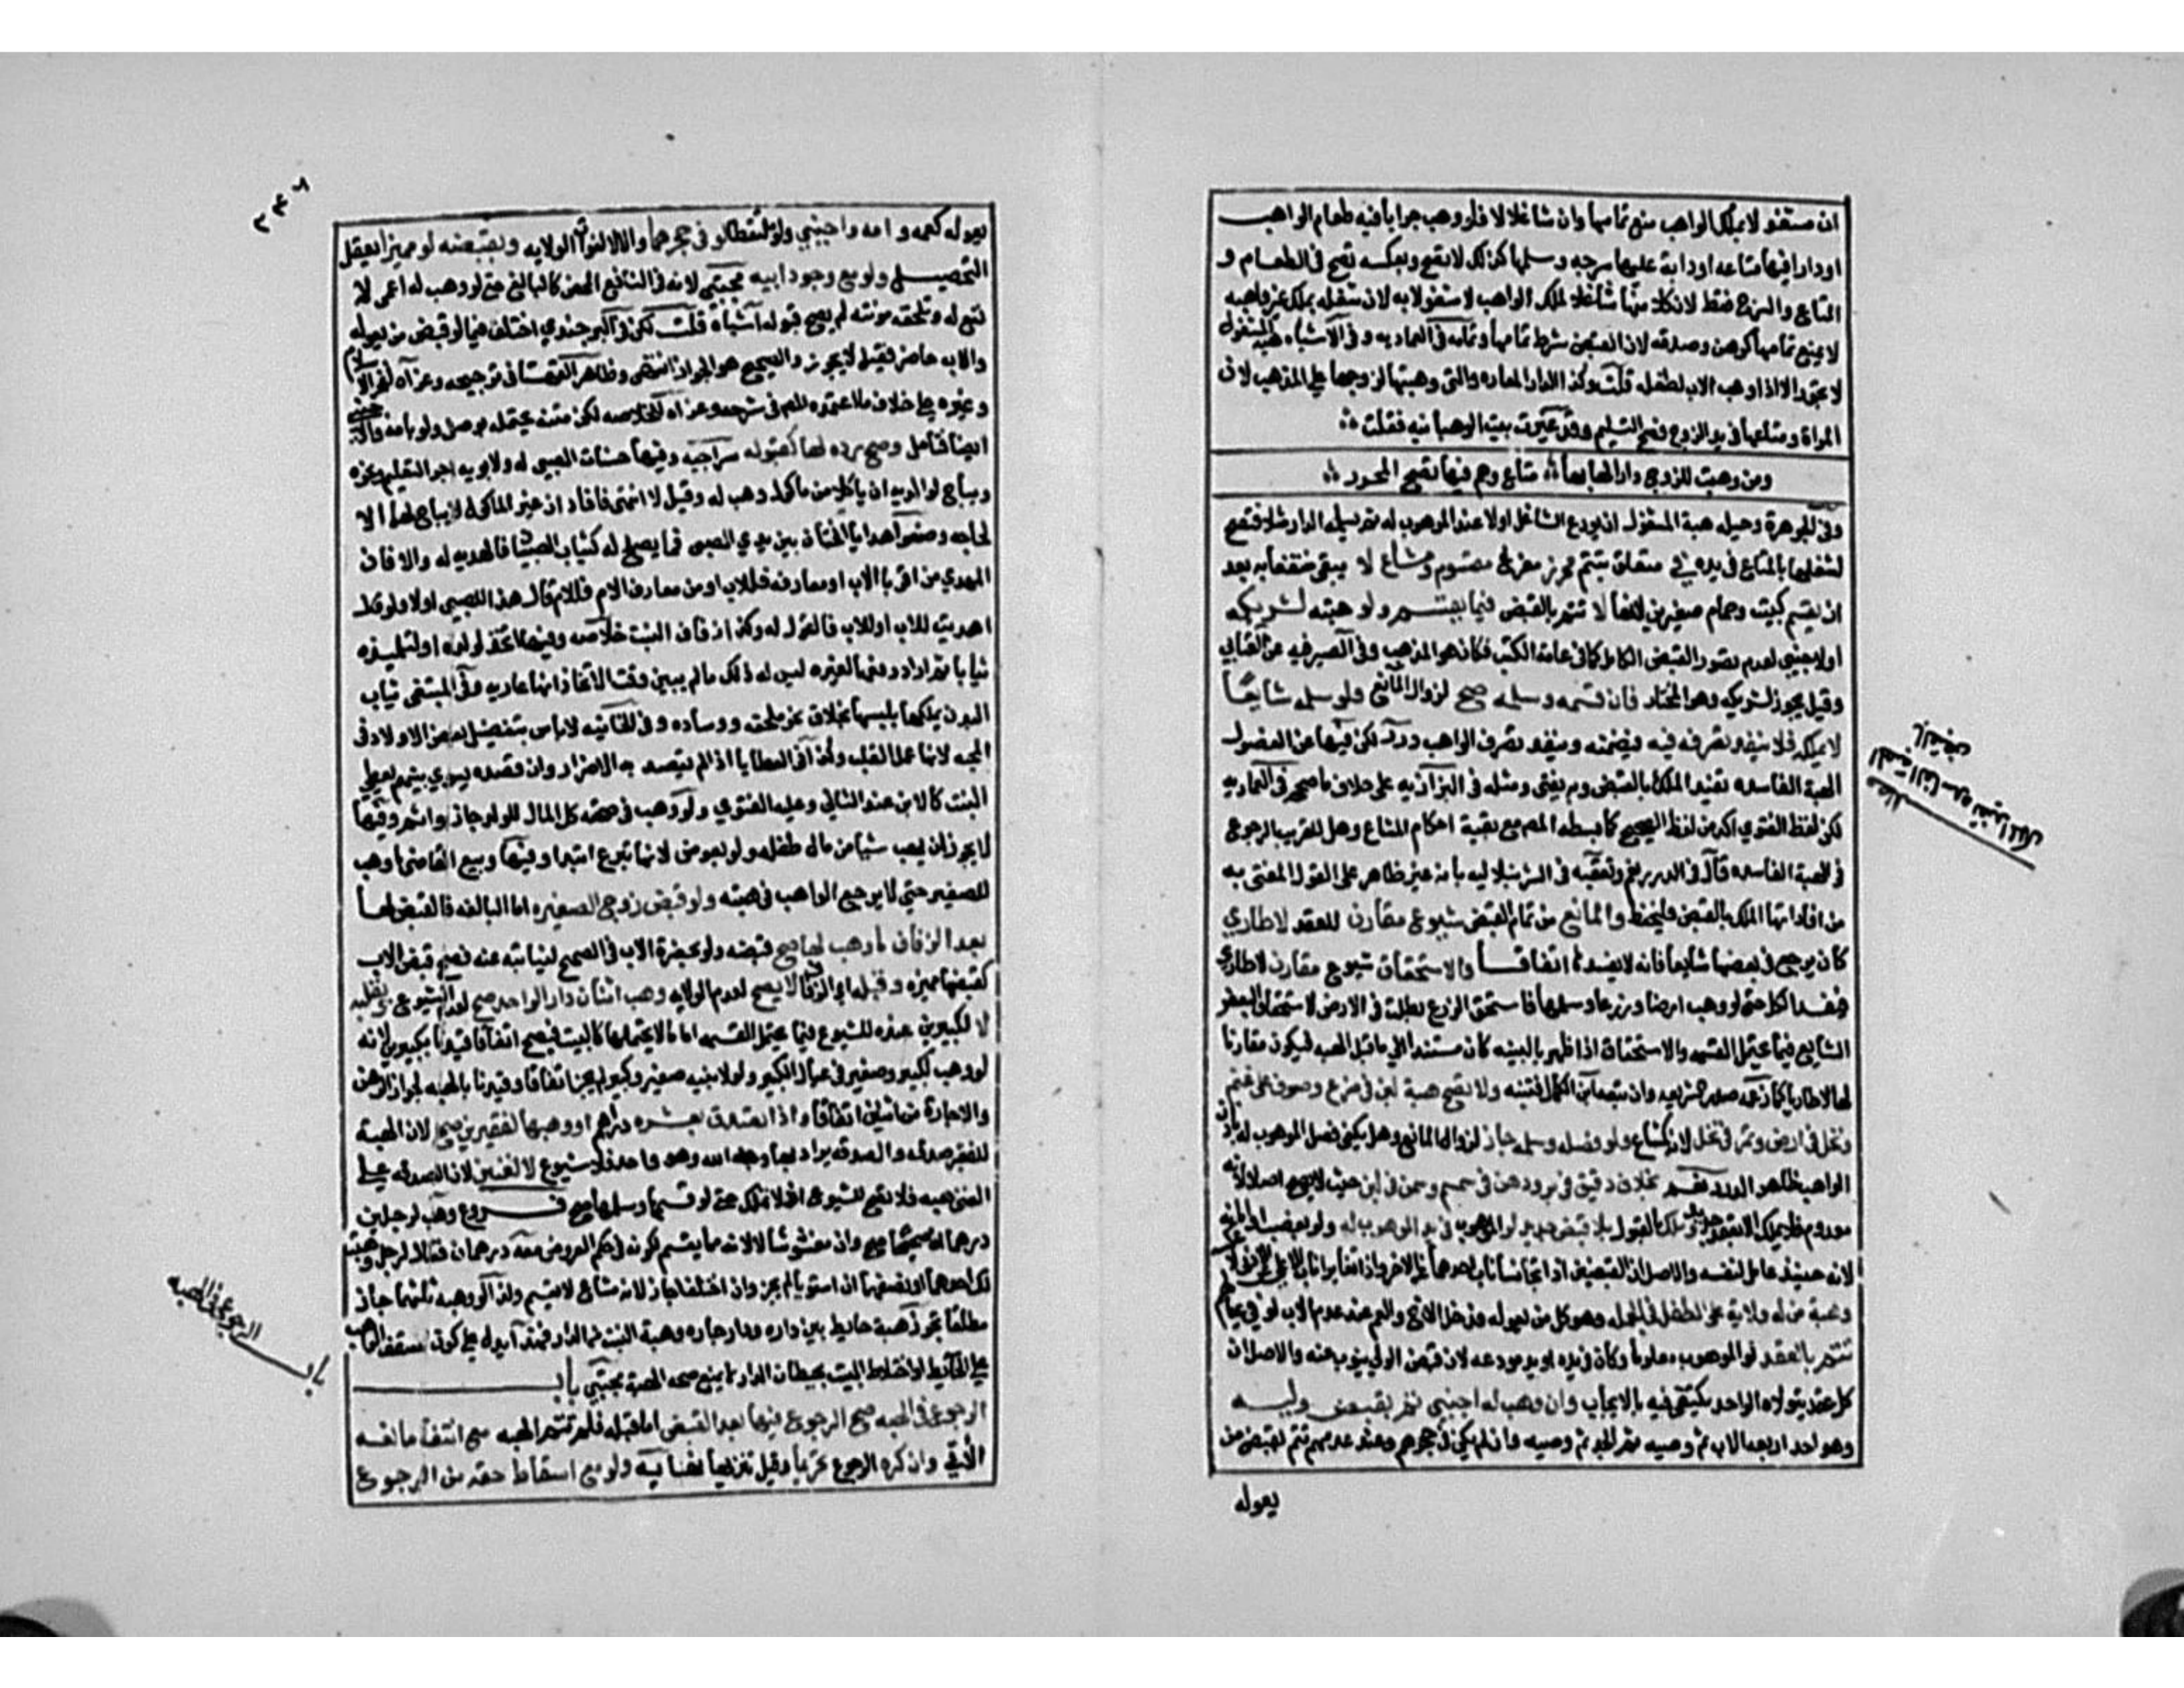 ان مشغولا بملك الواهب منع تمامها وان شاغلا لا فلو وهب جرابا فيه طعام الواهب
او دارا فيها متاعه او دابة عليها سرجه وسلمها كذلك لا تصح وبعكسه تصح في الطعام و
المتاع والسرج فقط لان كلا منها شاغل لملك الواهب لا مشغول به لان شغله بملك غير واهبه
لا يمنع تمامها كرهن وصدقه لان القبض شرط تمامها وتمامه في العماديه وفي الاشباه هبة المشغول
لا تجوز الا اذا وهب الاب لطفله قلت وكذا الدار المعاره والتي وهبتها لزوجها على المذهب لان
المراة ومتاعها في يد الزوج فصح التسليم وقد غيرت بيت الوهبانيه فقلت
ومن وهبت للزوج دارا لها بها متاع وهم فيها تصح المحرر
وفي الجوهرة وحيلة هبة المشغول ان يودع الشاغل اولا عند الموهوب له ثم يسلمه الدار مثلا فتصح
لشغلها بالمتاع في يده في متعلق بتتم محرز مفرغ مقسوم ومشاع لا يبقى منتفعا به بعد
ان يقسم كبيت وحمام صغيرين لانها لا تتم بالقبض فيما يقسم ولو هبته لشريكه
او لاجنبي لعدم تصور القبض الكامل كما في عامة الكتب فكان هو المذهب وفي الصيرفيه عن العتابي
وقيل يجوز لشريكه وهو المختار فان قسمه وسلمه صح لزوال المانع ولو سلمه شايعا
لا يملكه فلا ينفذ تصرفه فيه فيضمنه وينفذ تصرف الواهب درر لكن فيها عن الفصول
الهبة الفاسده تفيد الملك بالقبض وبه يفتى ومثله في البزازيه على خلاف ما صححه في العماديه
لكن لفظ الفتوي اكد من لفظ الصحيح كما بسطه المص مع بقية احكام المشاع وهل للقريب الرجوع
في الهبة الفاسده قال في الدرر نعم وتعقبه في الشرنبلاليه بانه غير ظاهر على القول المفتى به
من افادتها الملك بالقبض فليحفظ والمانع من تمام القبض شيوع مقارن للعقد لا طاري
كان يرجع في بعضها شايعا فانه لا يفسدها اتفاقا والاستحقاق شيوع مقارن لا طاري
فيفسد الكل حتى لو وهب ارضا وزرعا وسلمها فاستحق الزرع بطلت في الارض لاستحقاق البعض
الشايع فيما يحتمل القسمه والاستحقاق اذا ظهر بالبينه كان مستندا الى ما قبل الهبه فيكون مقارنا
لها لا طاريا كما زعمه صدر الشريعه وان تبعه ابن الكمال فتنبه ولا تصح هبة لبن في ضرع وصوف على غنم
ونخل في ارض وتمر في نخل لانه كمشاع ولو فصله وسلمه جاز لزوال المانع وهل يكفي فصل الموهوب له باذن
الواهب ظاهر الدرر نعم بخلاف دقيق في بر ودهن في سمسم وسمن في لبن حيث لا يصح اصلا لانه
معدوم فلا يملك الا بعقد جديد وملك بالقبول بلا قبض جديد لو الموهوب في يد الموهوب له ولو بغصب او امانه
لانه حينئذ عامل لنفسه والاصل ان القبضين اذا تجانسا ناب احدهما عن الاخر واذا تغايرا ناب الاعلى عن الادنى لا عكسه
وهبة من له ولاية على الطفل في الجمله وهو كل من يعوله فدخل الاخ والعم عند عدم الاب لو في عيالهم
تتم بالعقد لو الموهوب معلوما وكان في يده او يد مودعه لان قبض الولي ينوب عنه والاصل ان
كل عقد يتولاه الواحد يكتفى فيه بالايجاب وان وهب له اجنبي تتم بقبض وليه
وهو احد اربعه الاب ثم وصيه ثم الجد ثم وصيه وان لم يكن في حجرهم وعند عدمهم تتم بقبض من
يعوله
مطلب
الهبة الفاسده تفيد الملك
بالقبض
٢٣٨
يعوله كعمه وامه واجنبي ولو ملتقطا لو في حجرهما والا لا لفوات الولايه وبقبضه لو مميزا يعقل
التحصيل ولو مع وجود ابيه مجتبى لانه في النافع المحض كالبالغ حتى لو وهب له اعمى لا
نفع له وتلحقه مؤنته لم يصح قبوله اشباه قلت لكن في البرجندي اختلف فيما لو قبض من يعوله
والاب حاضر فقيل لا يجوز والصحيح هو الجواز انتهى وظاهر القهستاني ترجيحه وعزاه لفخر الاسلام
وغيره على خلاف ما اعتمده المص في شرحه وعزاه للخلاصه لكن متنه يحتمله بوصل ولو بامه والاجنبي
ايضا فتامل وصح رده لها كقبوله سراجيه وفيها حسنات الصبي له ولابويه اجر التعليم ونحوه
ويباح لوالديه ان ياكلا من ماكول وهب له وقيل لا انتهى فافاد ان غير الماكول لا يباح لهما الا
لحاجه وضعوا هدايا الختان بين يدي الصبي فما يصلح له كثياب الصبيان فالهديه له والا فان
المهدي من اقربا الاب او معارفه فللاب او من معارف الام فللام قال هذا للصبي اولا ولو قال
اهديت للاب او للام فالقول له وكذا زفاف البنت خلاصه وفيها اتخذ لولده او لتلميذه
ثيابا ثم اراد دفعها لغيره ليس له ذلك ما لم يبين وقت الاتخاذ انها عاريه وفي المبتغى ثياب
البدن يملكها بلبسها بخلاف نحو ملحفه ووساده وفي الخانيه لا باس بتفضيل بعض الاولاد في
المحبه لانها عمل القلب وكذا في العطايا اذا لم يقصد به الاضرار وان قصده يسوي بينهم يعطي
البنت كالابن عند الثاني وعليه الفتوي ولو وهب في صحته كل المال للولد جاز واثم وفيها
لا يجوز ان يهب شيا من مال طفله ولو بعوض لانها تبرع ابتدا وفيها ويبيع القاضي ما وهب
للصغير حتى لا يرجع الواهب في هبته ولو قبض زوج الصغيره اما البالغه فالقبض لها
بعد الزفاف ما وهب لها صح قبضه ولو بحضرة الاب في الصحيح لنيابته عنه فصح قبض الاب
كقبضها مميزه وقبله اي الزفاف لا يصح لعدم الولايه وهب اثنان دارا لواحد صح لعدم الشيوع وبقلبه
لا لكبيرين عنده للشيوع فيما يحتمل القسمه اما ما لا يحتملها كالبيت فيصح اتفاقا قيدنا بكبيرين لانه
لو وهب لكبير وصغير في عيال الكبير او لابنيه صغير وكبير لم يجز اتفاقا وقيدنا بالهبه لجواز الرهن
والاجارة من اثنين اتفاقا واذا تصدق بعشره دراهم او وهبها لفقيرين صح لان الهبة
للفقير صدقه والصدقه يراد بها وجه الله وهو واحد فلا شيوع لا لغنيين لان الصدقه على
الغني هبه فلا تصح للشيوع اي لا تملك حتى لو قسمها وسلمها صح فروع وهب لرجلين
درهما ان صحيحا صح وان مغشوشا لا لانه مما يقسم لكونه في حكم العروض معه درهمان فقال لرجل وهبت
لك احدهما او نصفهما ان استويا لم يجز وان اختلفا جاز لانه مشاع لا يقسم ولذا لو وهبه ثلثهما جاز
مطلقا تجوز هبة حايط بين داره ودار جاره لجاره وهبة البيت من الدار فهذا يدل على كون سقف الواهب
على الحايط او اختلاط البيت بحيطان الدار لا يمنع صحه الهبه مجتبى باب
الرجوع في الهبه صح الرجوع فيها بعد القبض اما قبله فلم تتم الهبه مع انتفا مانعه
الاتي وان كره الرجوع تحريما وقيل تنزيها نهايه ولو مع اسقاط حقه من الرجوع
باب الرجوع في الهبه